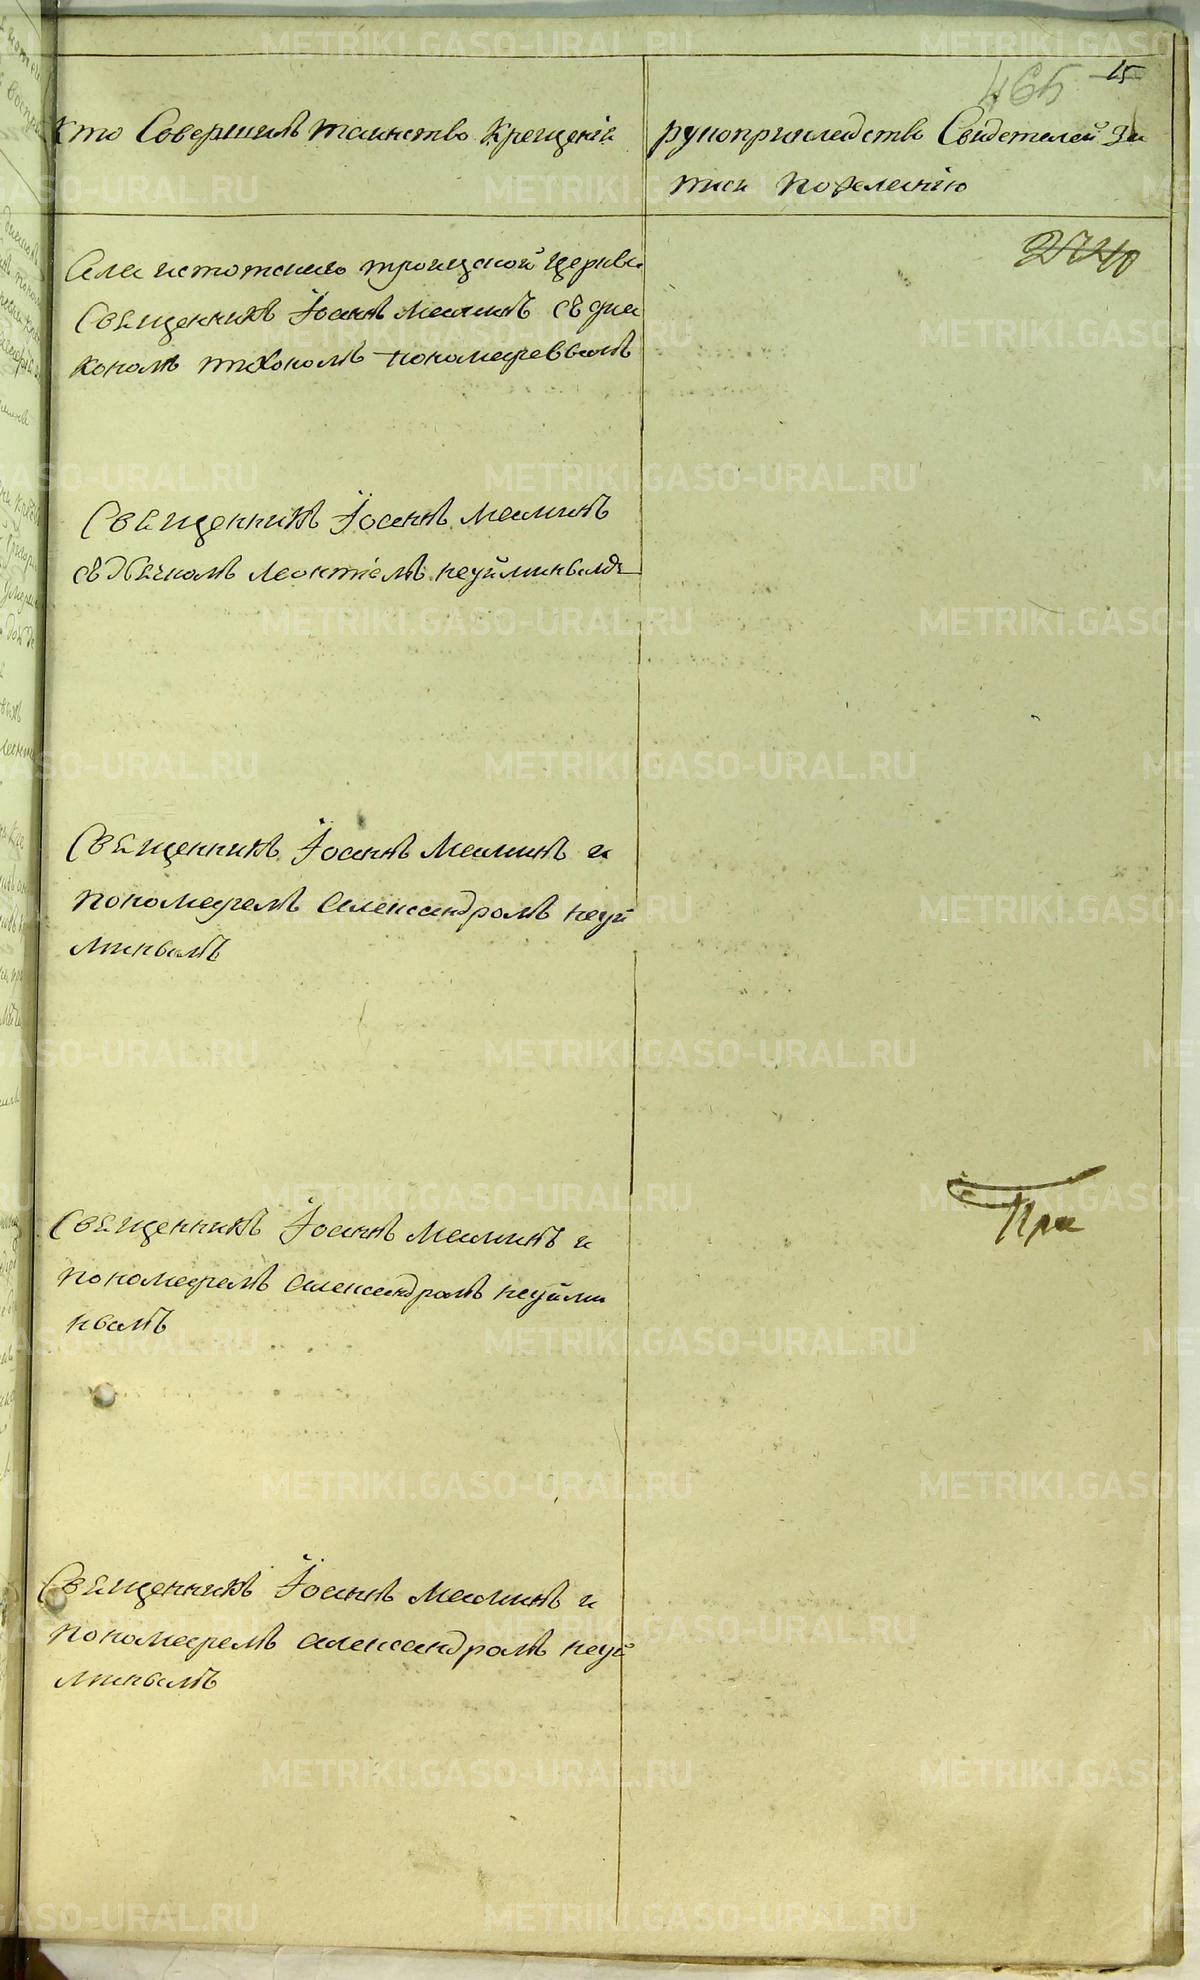 465 15
Кто Совершилъ таинство Крещенія
рукоприкладство Свидетелей За
писи по желанію
Села истокскаго троицкой церкви
Священникъ Іоаннъ Маминъ съ диа
кономъ тихономъ пономаревымъ
Священникъ Іоаннъ Маминъ
съ дьячкомъ Леонтіемъ неуйминымъ
Священникъ Іоаннъ Маминъ и
пономаремъ александромъ неуй
минымъ
Священникъ Іоаннъ Маминъ и
пономаремъ александромъ неуйми
нымъ
При
Священникъ Іоаннъ Маминъ и
пономаремъ александромъ неуй
минымъ
METRIKI.GASO-URAL.RU